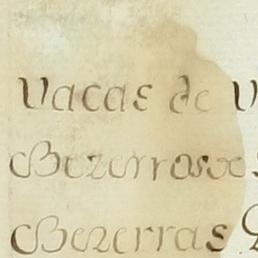 Vacas de V
Bezerros de
Bezerras